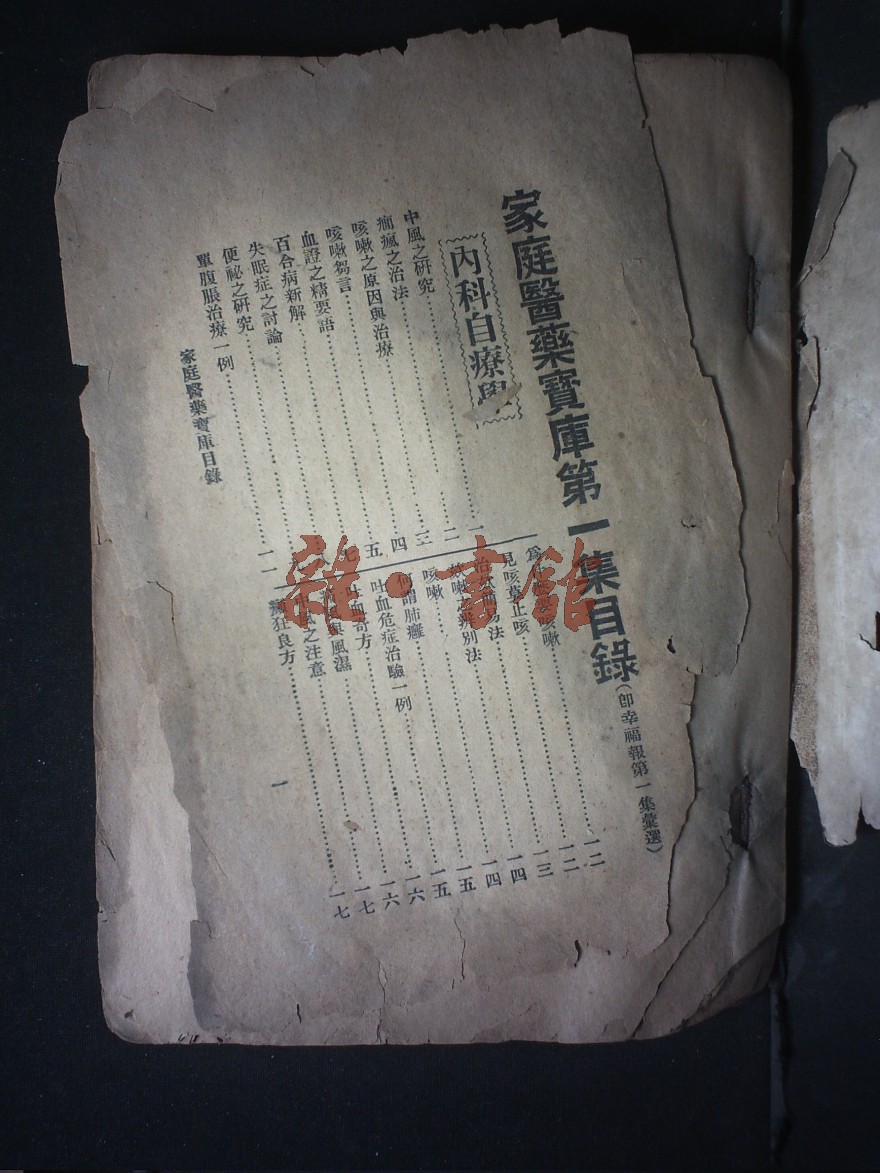 家庭醫藥寶庫第一集目錄(卽幸福報第一集彙選)
內科自療學
中風之研究……一
癎瘋之治法……二
咳嗽之原因與治療……三
咳嗽芻言……四
血證之精要語……五
百合病新解……
失眠症之討論……八
便祕之研究……
單腹脹治療一例……一一
爲咳嗽……一二
見咳莫止咳……一二
治易法……一三
嗽之辨別法……一四
咳嗽……一四
何謂肺癰……一五
吐血危症治驗一例……一五
吐血奇方……一六
與風濕……一六
中風之注意……一七
狂良方……一七
家庭醫藥寶庫目錄
一
雜·書館